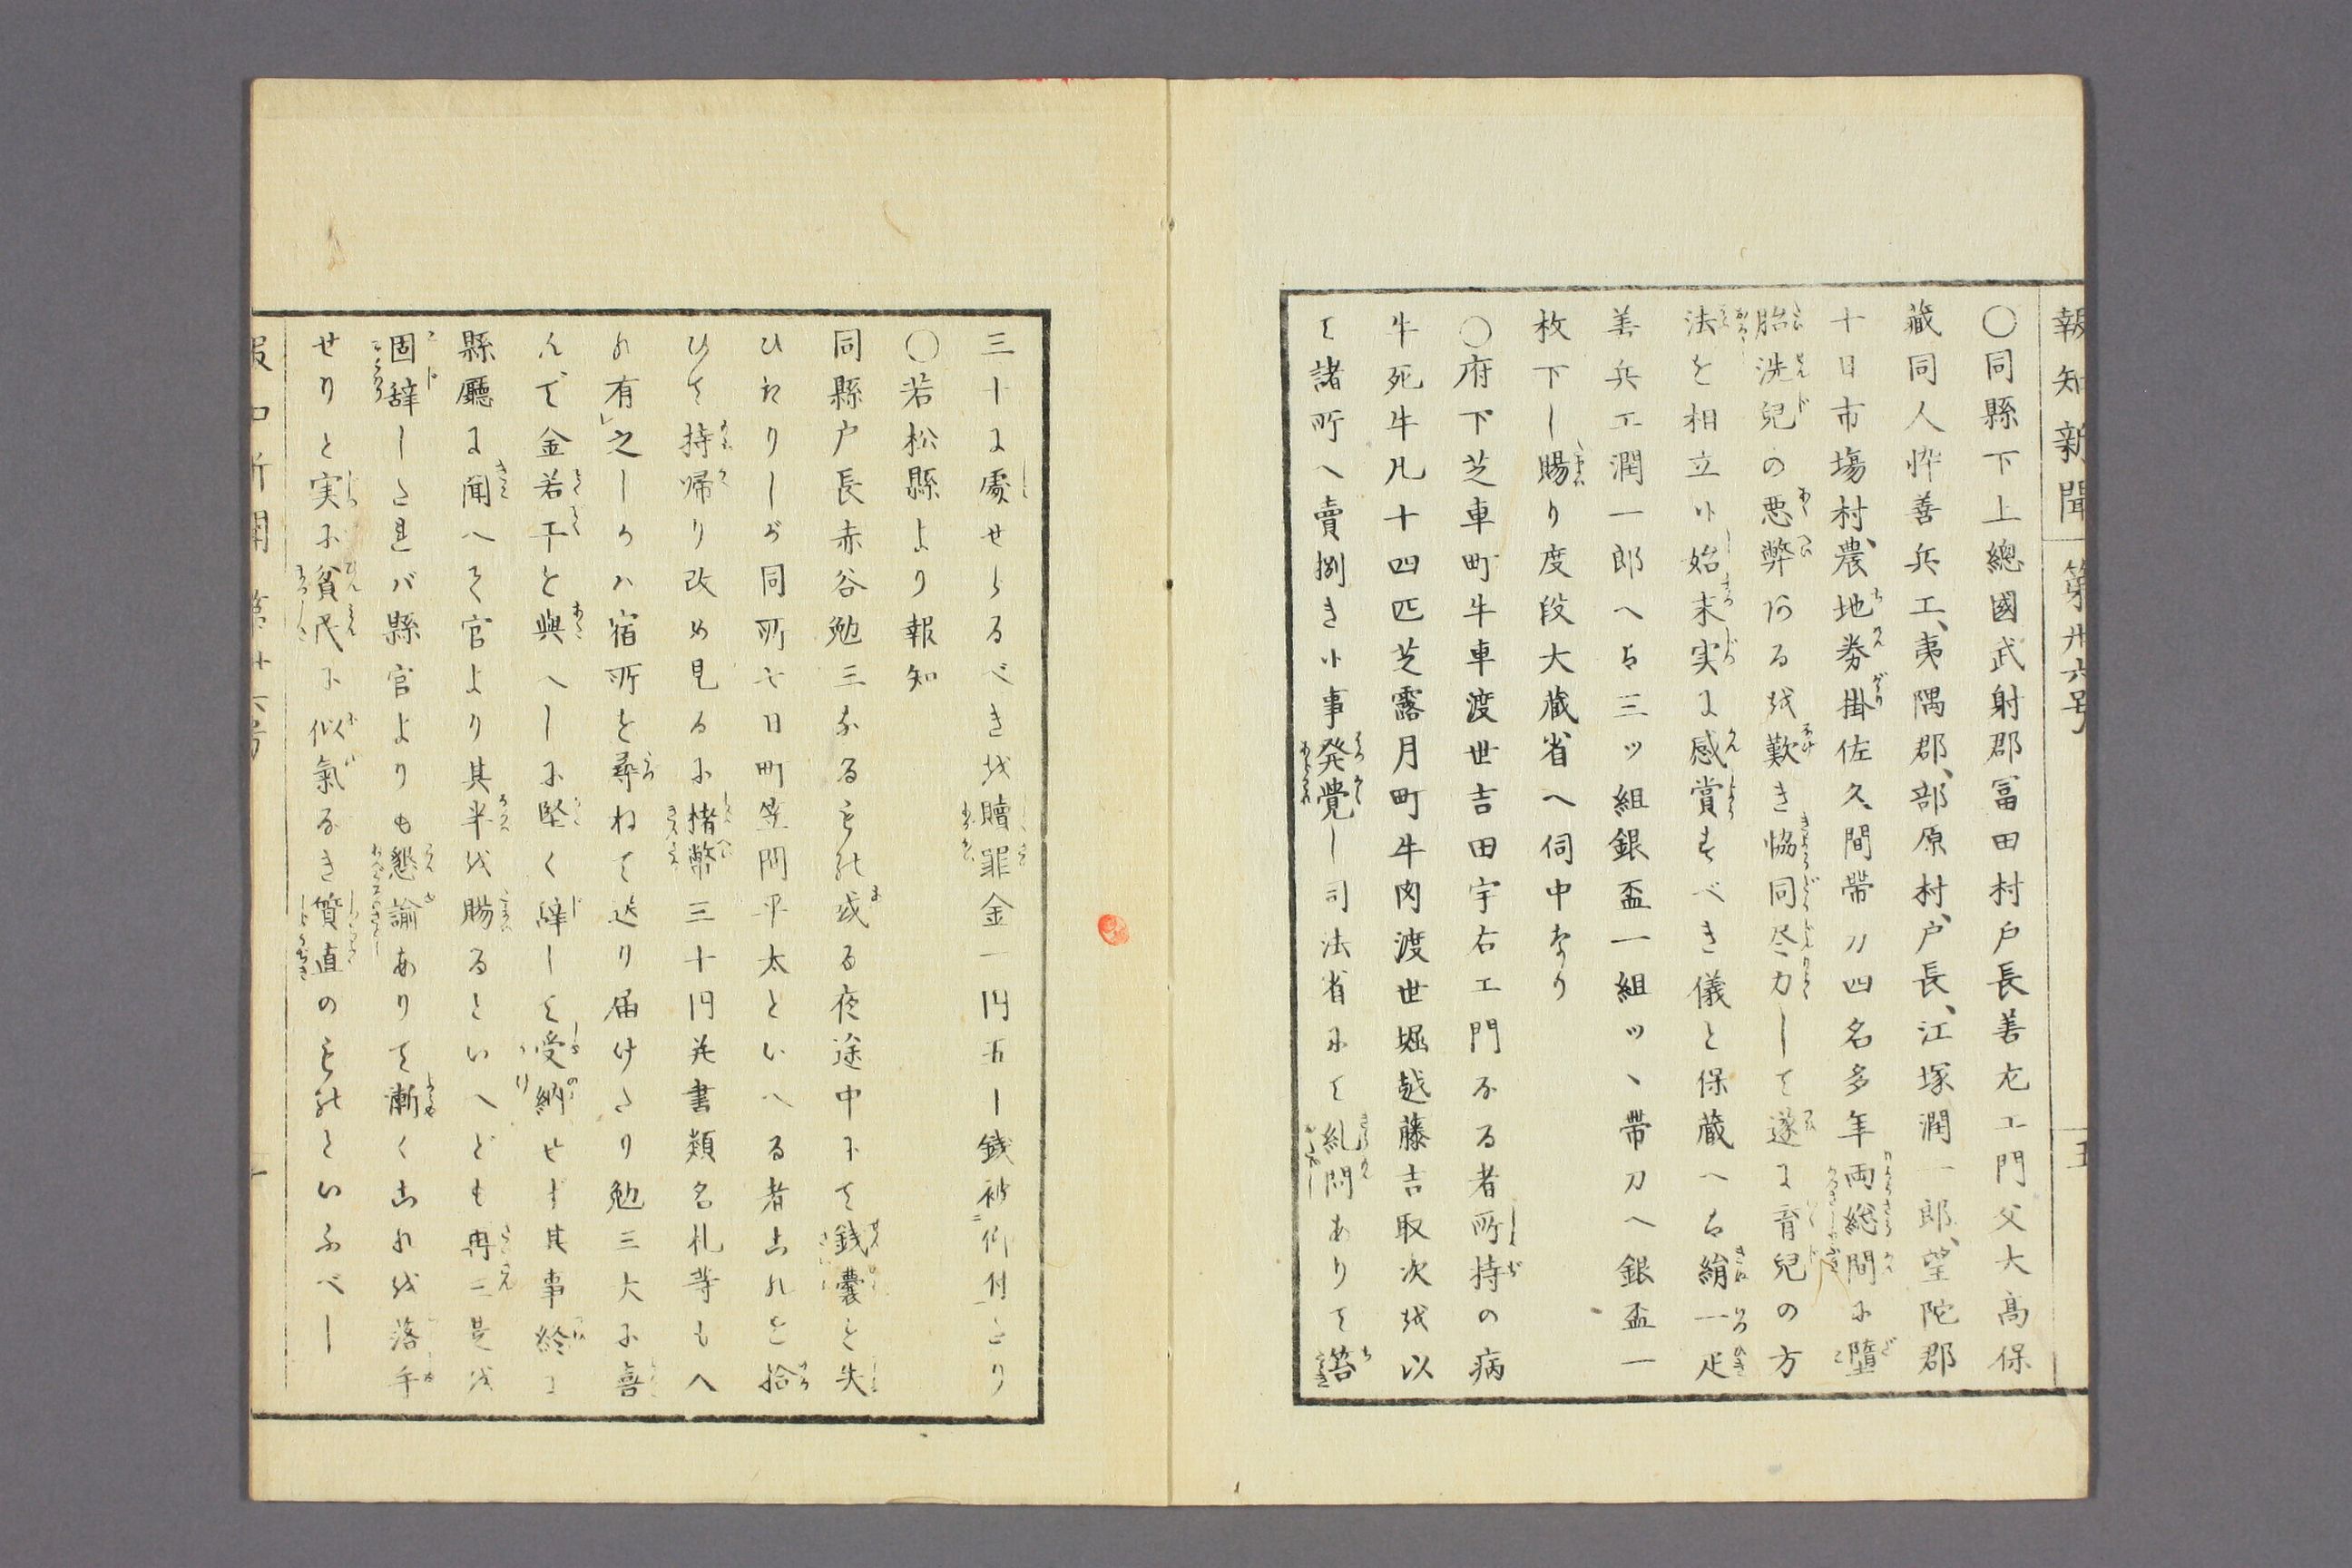 報知新聞 第卅六号 五
〇同縣下上總國武射郡冨田村戸長善尤エ門父大高保
藏同人忰善兵エ、夷隅郡、部原村、戸長、江塚潤一郎、望陀郡
十日市塲村、農地劵掛佐久間帯刀四名多年両総間ニ墮
胎洗兒の悪弊阿る越歎き協同尽力して遂に育兒の方
法を相立候始末実に感賞すべき儀と保蔵へハ絹一疋
善兵エ潤一郎へハ三ツ組銀盃一組ツヽ帯刀へ銀盃一
枚下し賜り度段大蔵省へ伺中なり
〇府下芝車町牛車渡世吉田宇右エ門なる者所持の病
牛死牛凡十四匹芝露月町牛肉渡世堀越藤吉取次越以
て諸所へ賣捌き候事発覺し司法省にて糺問ありて笞
三十に處せらるべき越贖罪金一円五十錢被仰付たり
〇若松縣より報知
同縣戸長赤谷勉三なるもの或る夜途中にて銭嚢を失
ひたりしが同所七日町笠間平太といへる者これを拾
ひて持帰り改め見るに楮幣三十円并書類名札等もへ
れ有之しかハ宿所を尋ねて送り届けたり勉三大に喜
んで金若干を與へしに堅く辞して受納せず其事終に
縣廳に聞へて官より其半を賜るといへども再三是を
固辞したれバ縣官よりも懇諭ありて漸くこれを落手
せりと実に貧民に似氣なき質直のものといふべし